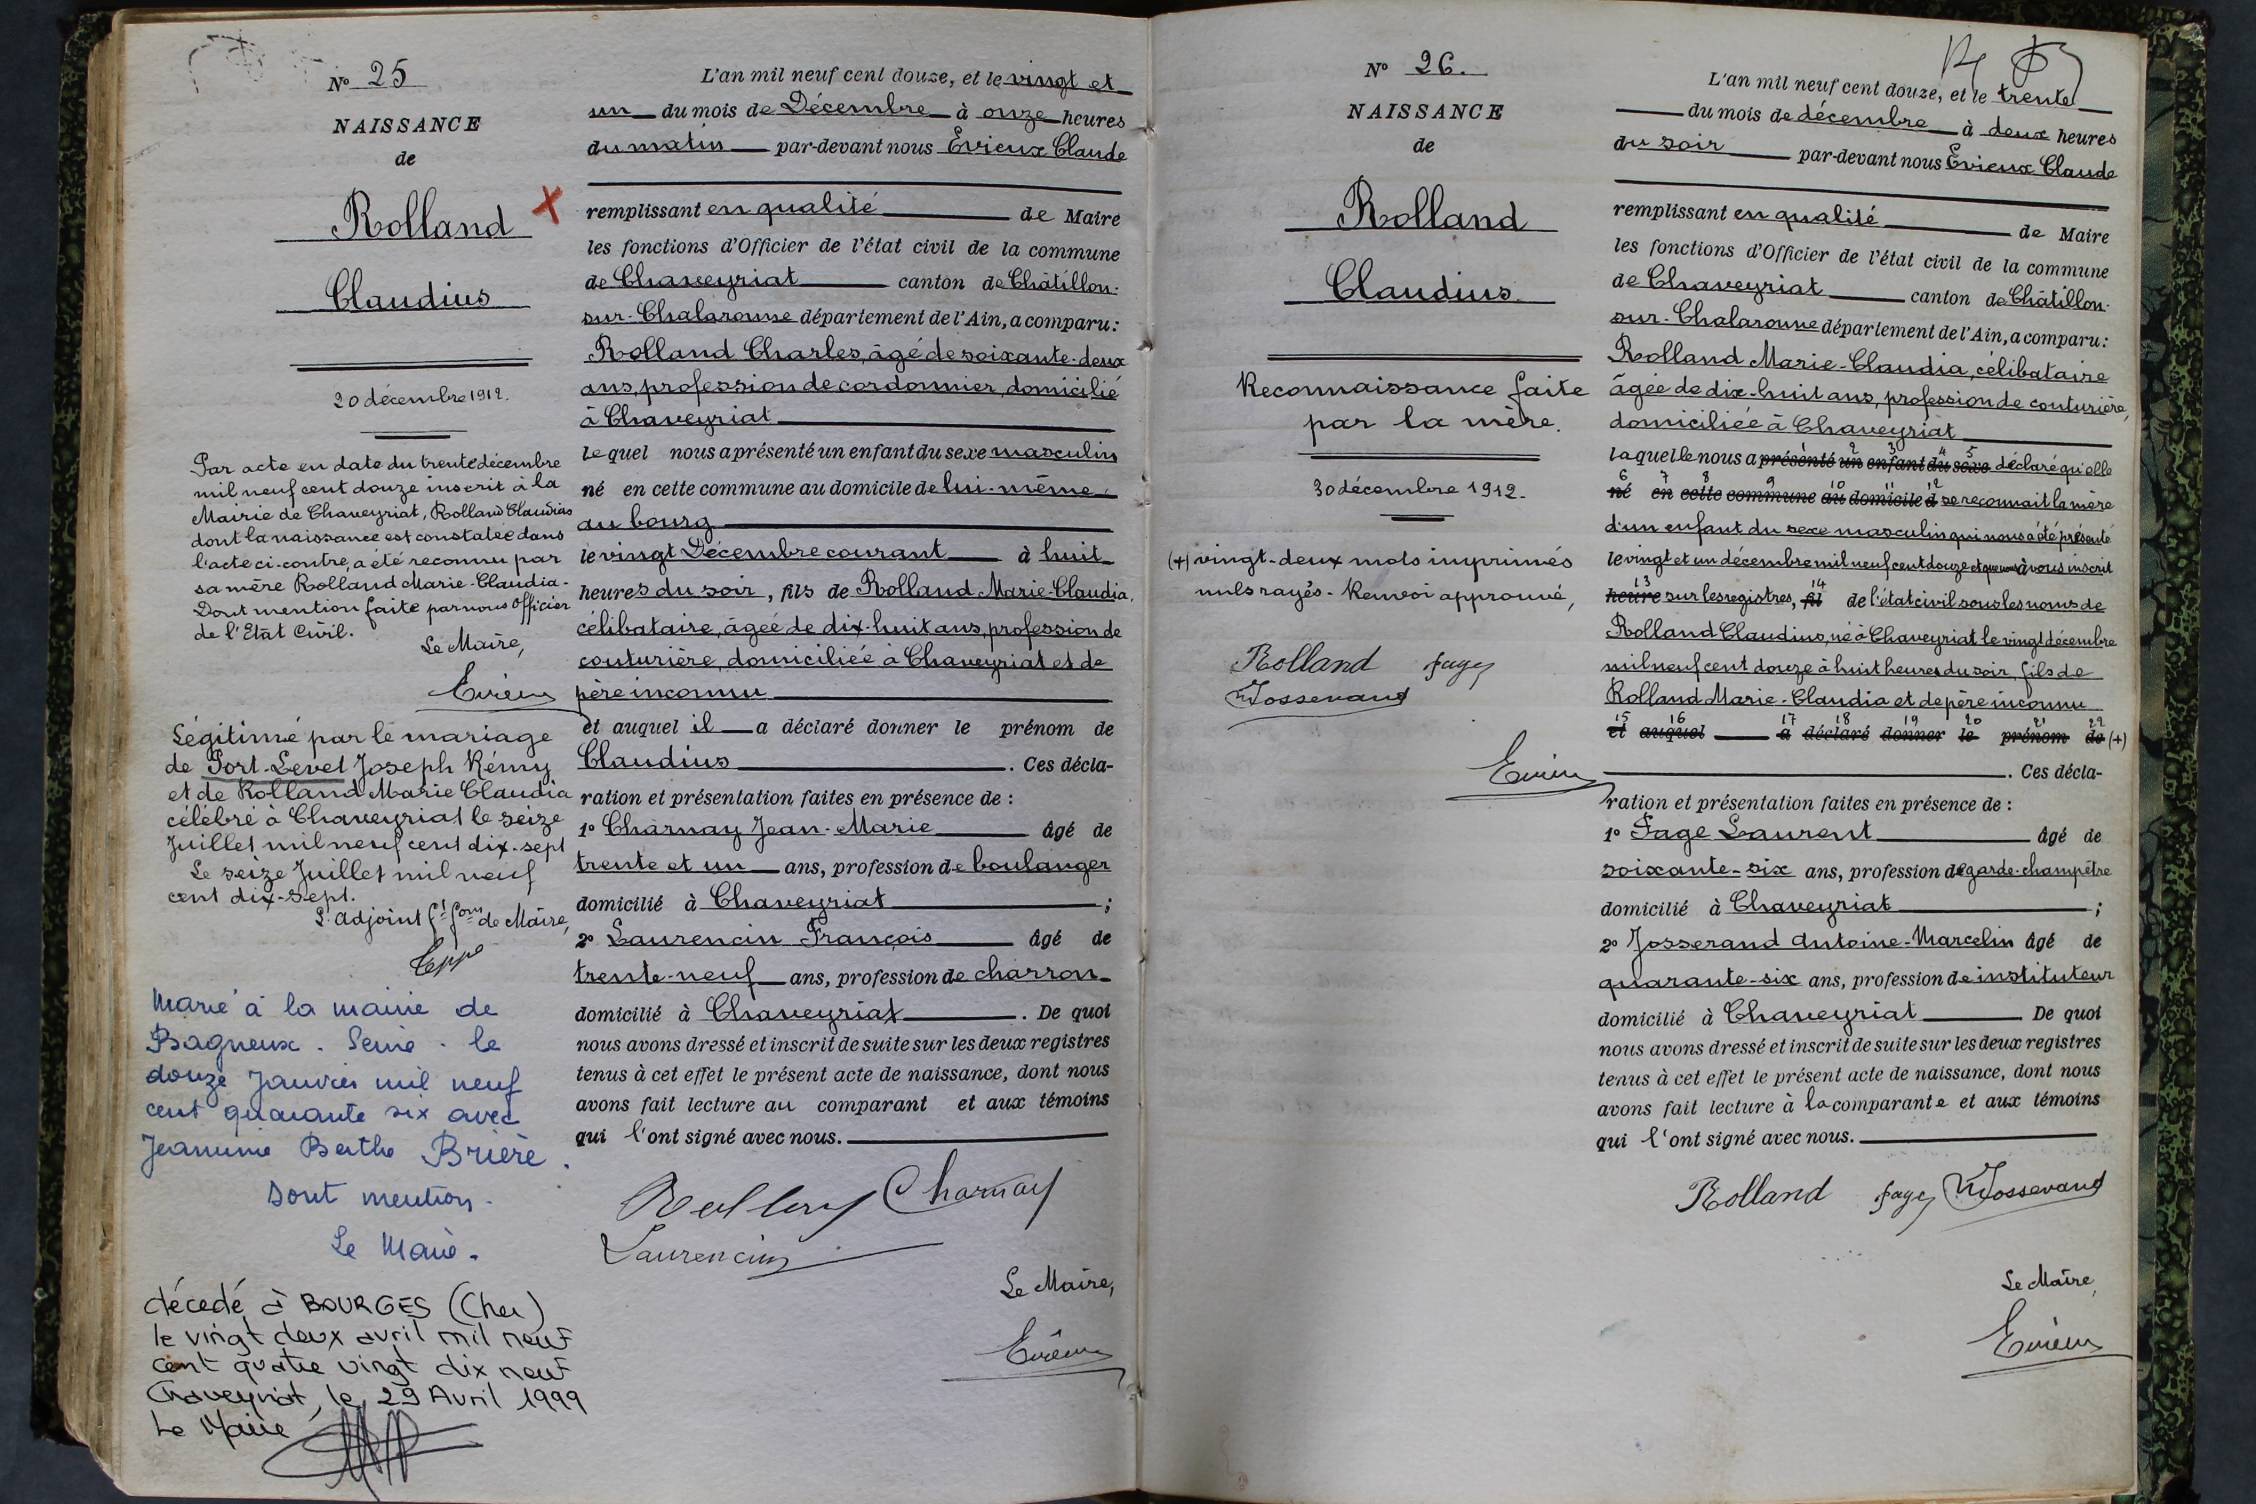 N° 25
NAISSANCE
de
Rolland
Claudius
20 décembre 1912.
Par acte en date du trente décembre
mil neuf cent douze inscrit à la
Mairie de Chaveyriat, Rolland Claudius
dont la naissance est constatée dans
l'acte ci-contre, a été reconnu par
sa mère Rolland Marie-Claudia-
Dont mention faite par nous Officier
de l'Etat Civil.
Le Maire,
Evieux
Légitimé par le mariage
de Port-Levet Joseph Rémy
et de Rolland Marie Claudia
célébré à Chaveyriat le seize
Juillet mil neuf cent dix-sept
Le seize Juillet mil neuf
cent dix-sept.
L'adjoint ft fons de Maire,
Eppe
Marié à la mairie de
Bagneux. Seine. le
douze Janvier mil neuf
cent quarante six avec
Jeannine Berthe Brière.
Dont mention.
Le Maire.
décédé à BOURGES (Cher)
le vingt deux avril mil neuf
cent quatre vingt dix neuf
Chaveyriat, le 29 Avril 1999
Le Maire
L'an mil neuf cent douze, et le vingt et
un du mois de Décembre à onze heures
du matin par-devant nous Evieux Claude
remplissant en qualité de Maire
les fonctions d'Officier de l'état civil de la commune
de Chaveyriat canton de Châtillon-
sur-Chalaronne département de l'Ain, a comparu:
Rolland Charles, âgé de soixante-deux
ans, profession de cordonnier, domicilié
à Chaveyriat
lequel nous a présenté un enfant du sexe masculin
né en cette commune au domicile de lui-même,
au bourg
le vingt Décembre courant à huit
heures du soir, fils de Rolland Marie-Claudia,
célibataire, âgée de dix-huit ans, profession de
couturière, domiciliée à Chaveyriat et de
père inconnu
et auquel il a déclaré donner le prénom de
Claudius. Ces décla-
ration et présentation faites en présence de :
1° Charnay Jean-Marie âgé de
trente et un ans, profession de boulanger
domicilié à Chaveyriat ;
2° Laurencin François âgé de
trente-neuf ans, profession de charron
domicilié à Chaveyriat. De quoi
nous avons dressé et inscrit de suite sur les deux registres
tenus à cet effet le présent acte de naissance, dont nous
avons fait lecture au comparant et aux témoins
qui l'ont signé avec nous.
Rolland Charnay
Laurencin
Le Maire,
Evieux
N° 26.
NAISSANCE
de
Rolland
Claudius
Reconnaissance faite
par la mère.
30 décembre 1912.
(+) vingt-deux mots imprimés
nuls rayés - Renvoi approuvé,
Rolland Fage
Josserand
Evieux
L'an mil neuf cent douze, et le trente
du mois de décembre à deux heures
du soir par-devant nous Evieux Claude
remplissant en qualité de Maire
les fonctions d'Officier de l'état civil de la commune
de Chaveyriat canton de Châtillon-
sur-Chalaronne département de l'Ain, a comparu:
Rolland Marie-Claudia, célibataire
âgée de dix-huit ans, profession de couturière,
domiciliée à Chaveyriat
2 3 4 5
laquelle nous a présenté un enfant du sexe déclaré qu'elle
6 7 8 9 10 11 12
né en cette commune au domicile d se reconnait la mère
d'un enfant du sexe masculin qui nous a été présenté
le vingt et un décembre mil neuf cent douze et que nous avons inscrit
13 14
heure sur les registres, fil de l'état civil sous les noms de
Rolland Claudius, né à Chaveyriat le vingt décembre
mil neuf cent douze à huit heures du soir, fils de
Rolland Marie-Claudia et de père inconnu
15 16 17 18 19 20 21 22
et auquel a déclaré donner le prénom de (+)
. Ces décla-
ration et présentation faites en présence de :
1° Fage Laurent âgé de
soixante-six ans, profession de garde-champêtre
domicilié à Chaveyriat ;
2° Josserand Antoine-Marcelin âgé de
quarante-six ans, profession de instituteur
domicilié à Chaveyriat De quoi
nous avons dressé et inscrit de suite sur les deux registres
tenus à cet effet le présent acte de naissance, dont nous
avons fait lecture à la comparante et aux témoins
qui l'ont signé avec nous.
Rolland Fage Josserand
Le Maire,
Evieux